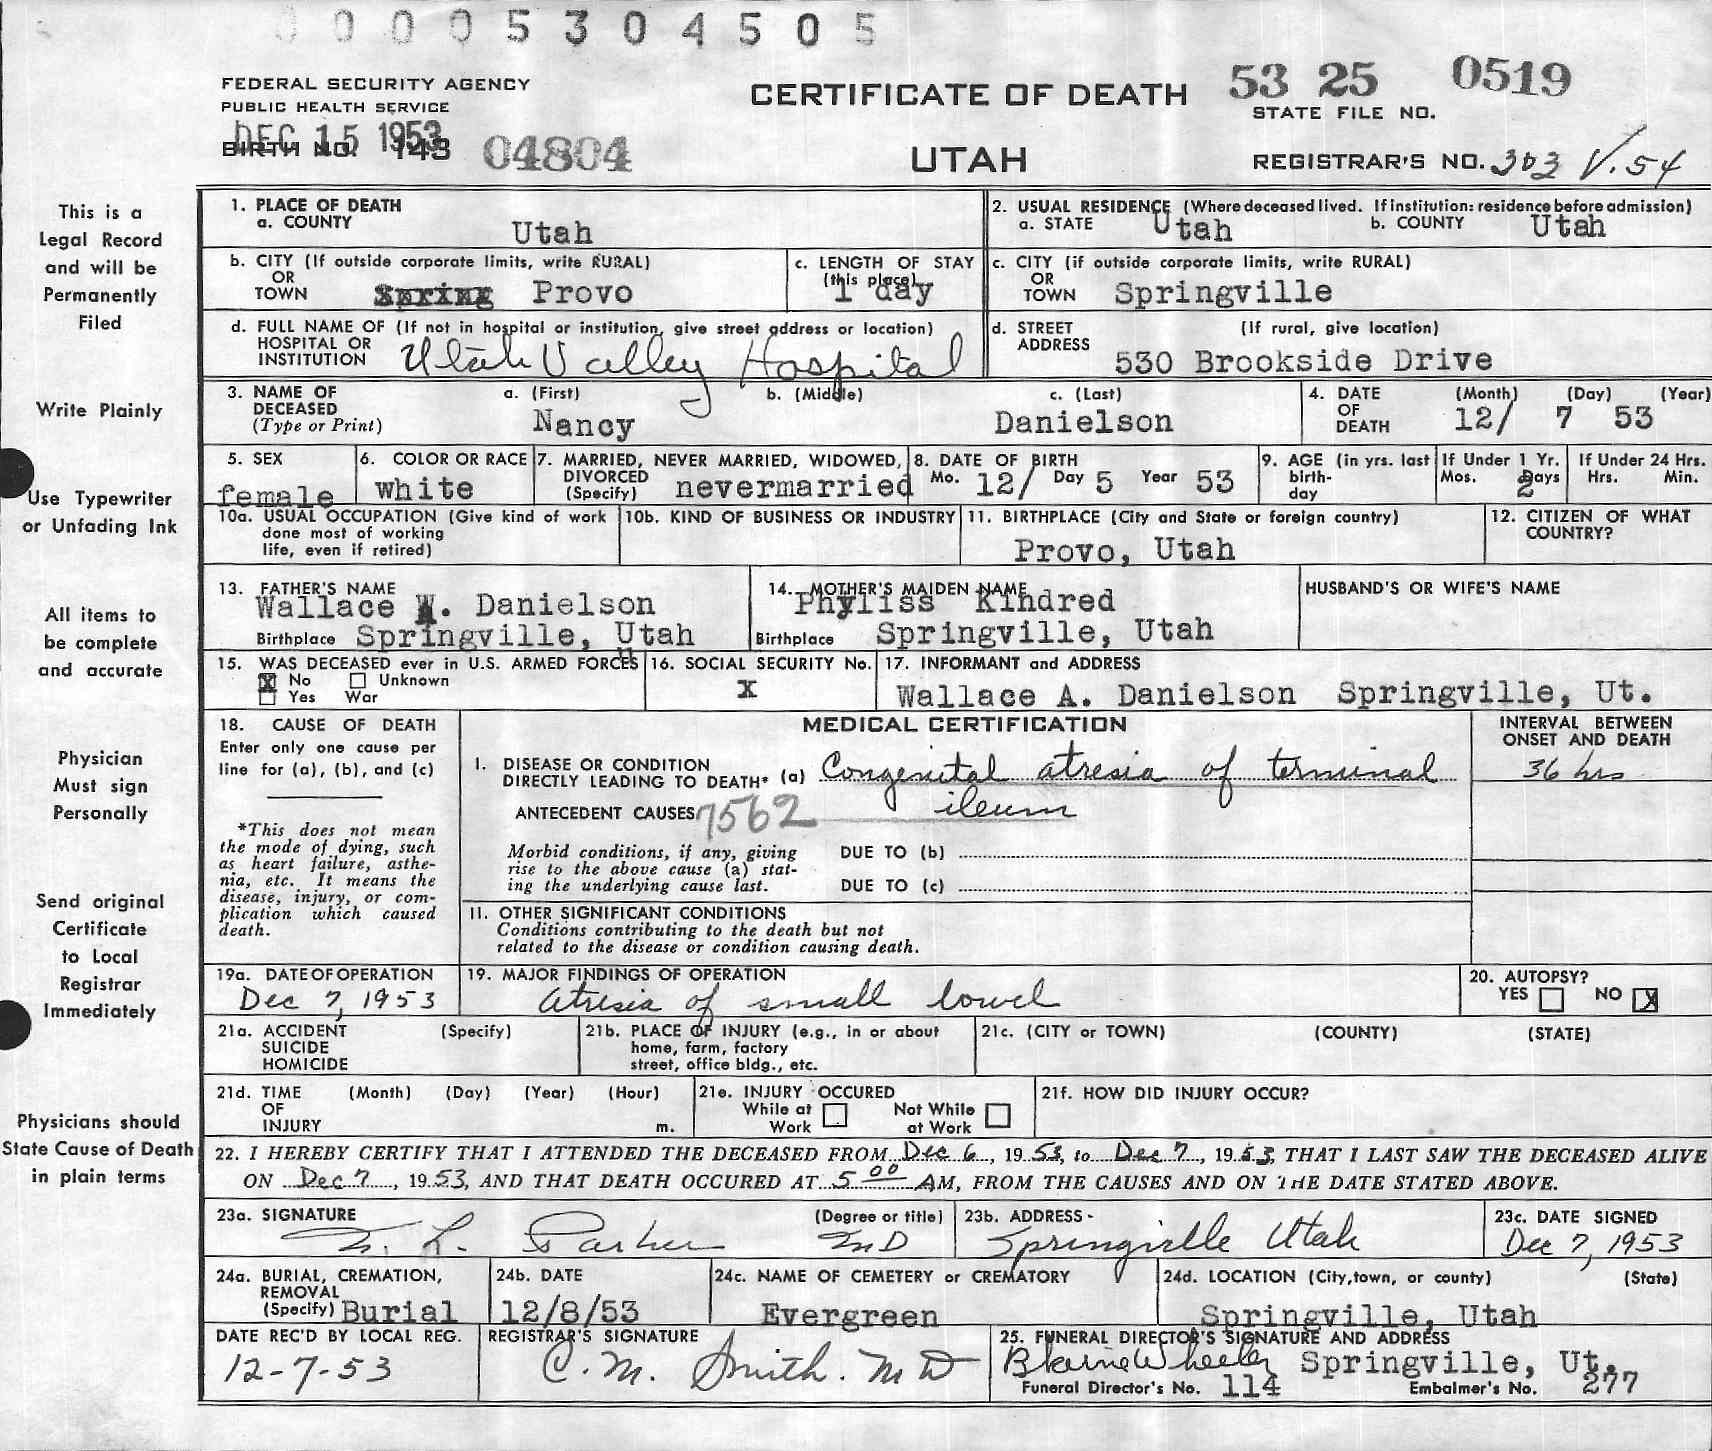 0 0 0 0 5 3 0 4 5 0 5
FEDERAL SECURITY AGENCY
PUBLIC HEALTH SERVICE
DEC 15 1953
BIRTH NO. 143 04804
CERTIFICATE OF DEATH
UTAH
53 25 0519
STATE FILE NO.
REGISTRAR'S NO. 303 V.54
This is a
Legal Record
and will be
Permanently
Filed
Write Plainly
Use Typewriter
or Unfading Ink
All items to
be complete
and accurate
Physician
Must sign
Personally
Send original
Certificate
to Local
Registrar
Immediately
Physicians should
State Cause of Death
in plain terms
1. PLACE OF DEATH
a. COUNTY Utah
2. USUAL RESIDENCE (Where deceased lived. If institution: residence before admission)
a. STATE Utah b. COUNTY Utah
b. CITY (If outside corporate limits, write RURAL)
OR
TOWN Spring Provo
c. LENGTH OF STAY
(this place)
1 day
c. CITY (if outside corporate limits, write RURAL)
OR
TOWN Springville
d. FULL NAME OF (If not in hospital or institution, give street address or location)
HOSPITAL OR
INSTITUTION Utah Valley Hospital
d. STREET (If rural, give location)
ADDRESS
530 Brookside Drive
3. NAME OF a. (First) b. (Middle) c. (Last)
DECEASED
(Type or Print) Nancy Danielson
4. DATE (Month) (Day) (Year)
OF
DEATH 12/ 7 53
5. SEX
female
6. COLOR OR RACE
white
7. MARRIED, NEVER MARRIED, WIDOWED,
DIVORCED
(Specify) nevermarried
8. DATE OF BIRTH
Mo. 12/ Day 5 Year 53
9. AGE (in yrs. last
birth-
day
If Under 1 Yr.
Mos. Days
2
If Under 24 Hrs.
Hrs. Min.
10a. USUAL OCCUPATION (Give kind of work
done most of working
life, even if retired)
10b. KIND OF BUSINESS OR INDUSTRY
11. BIRTHPLACE (City and State or foreign country)
Provo, Utah
12. CITIZEN OF WHAT
COUNTRY?
13. FATHER'S NAME
Wallace A. Danielson
Birthplace Springville, Utah
14. MOTHER'S MAIDEN NAME
Phyliss Kindred
Birthplace Springville, Utah
HUSBAND'S OR WIFE'S NAME
15. WAS DECEASED ever in U.S. ARMED FORCES
X No Unknown
Yes War
16. SOCIAL SECURITY No.
x
17. INFORMANT and ADDRESS
Wallace A. Danielson Springville, Ut.
18. CAUSE OF DEATH
Enter only one cause per
line for (a), (b), and (c)
*This does not mean
the mode of dying, such
as heart failure, asthe-
nia, etc. It means the
disease, injury, or com-
plication which caused
death.
MEDICAL CERTIFICATION
INTERVAL BETWEEN
ONSET AND DEATH
I. DISEASE OR CONDITION
DIRECTLY LEADING TO DEATH* (a) Congenital atresia of terminal 36 hrs
ANTECEDENT CAUSES 7562 ileum
Morbid conditions, if any, giving
rise to the above cause (a) stat-
ing the underlying cause last.
DUE TO (b)
DUE TO (c)
II. OTHER SIGNIFICANT CONDITIONS
Conditions contributing to the death but not
related to the disease or condition causing death.
19a. DATE OF OPERATION
Dec 7, 1953
19. MAJOR FINDINGS OF OPERATION
atresia of small bowel
20. AUTOPSY?
YES NO X
21a. ACCIDENT (Specify)
SUICIDE
HOMICIDE
21b. PLACE OF INJURY (e.g., in or about
home, farm, factory
street, office bldg., etc.
21c. (CITY or TOWN) (COUNTY) (STATE)
21d. TIME (Month) (Day) (Year) (Hour)
OF
INJURY m.
21e. INJURY OCCURED
While at Work Not While at Work
21f. HOW DID INJURY OCCUR?
22. I HEREBY CERTIFY THAT I ATTENDED THE DECEASED FROM Dec 6, 1953, to Dec 7, 1953, THAT I LAST SAW THE DECEASED ALIVE
ON Dec 7, 1953, AND THAT DEATH OCCURED AT 5 00 AM, FROM THE CAUSES AND ON THE DATE STATED ABOVE.
23a. SIGNATURE (Degree or title)
L. Parker MD
23b. ADDRESS
Springville Utah
23c. DATE SIGNED
Dec 7, 1953
24a. BURIAL, CREMATION,
REMOVAL
(Specify) Burial
24b. DATE
12/8/53
24c. NAME OF CEMETERY or CREMATORY
Evergreen
24d. LOCATION (City, town, or county) (State)
Springville, Utah
DATE REC'D BY LOCAL REG.
12-7-53
REGISTRAR'S SIGNATURE
C. M. Smith. MD
25. FUNERAL DIRECTOR'S SIGNATURE AND ADDRESS
Blaine Wheeler Springville, Ut.
Funeral Director's No. 114 Embalmer's No. 277